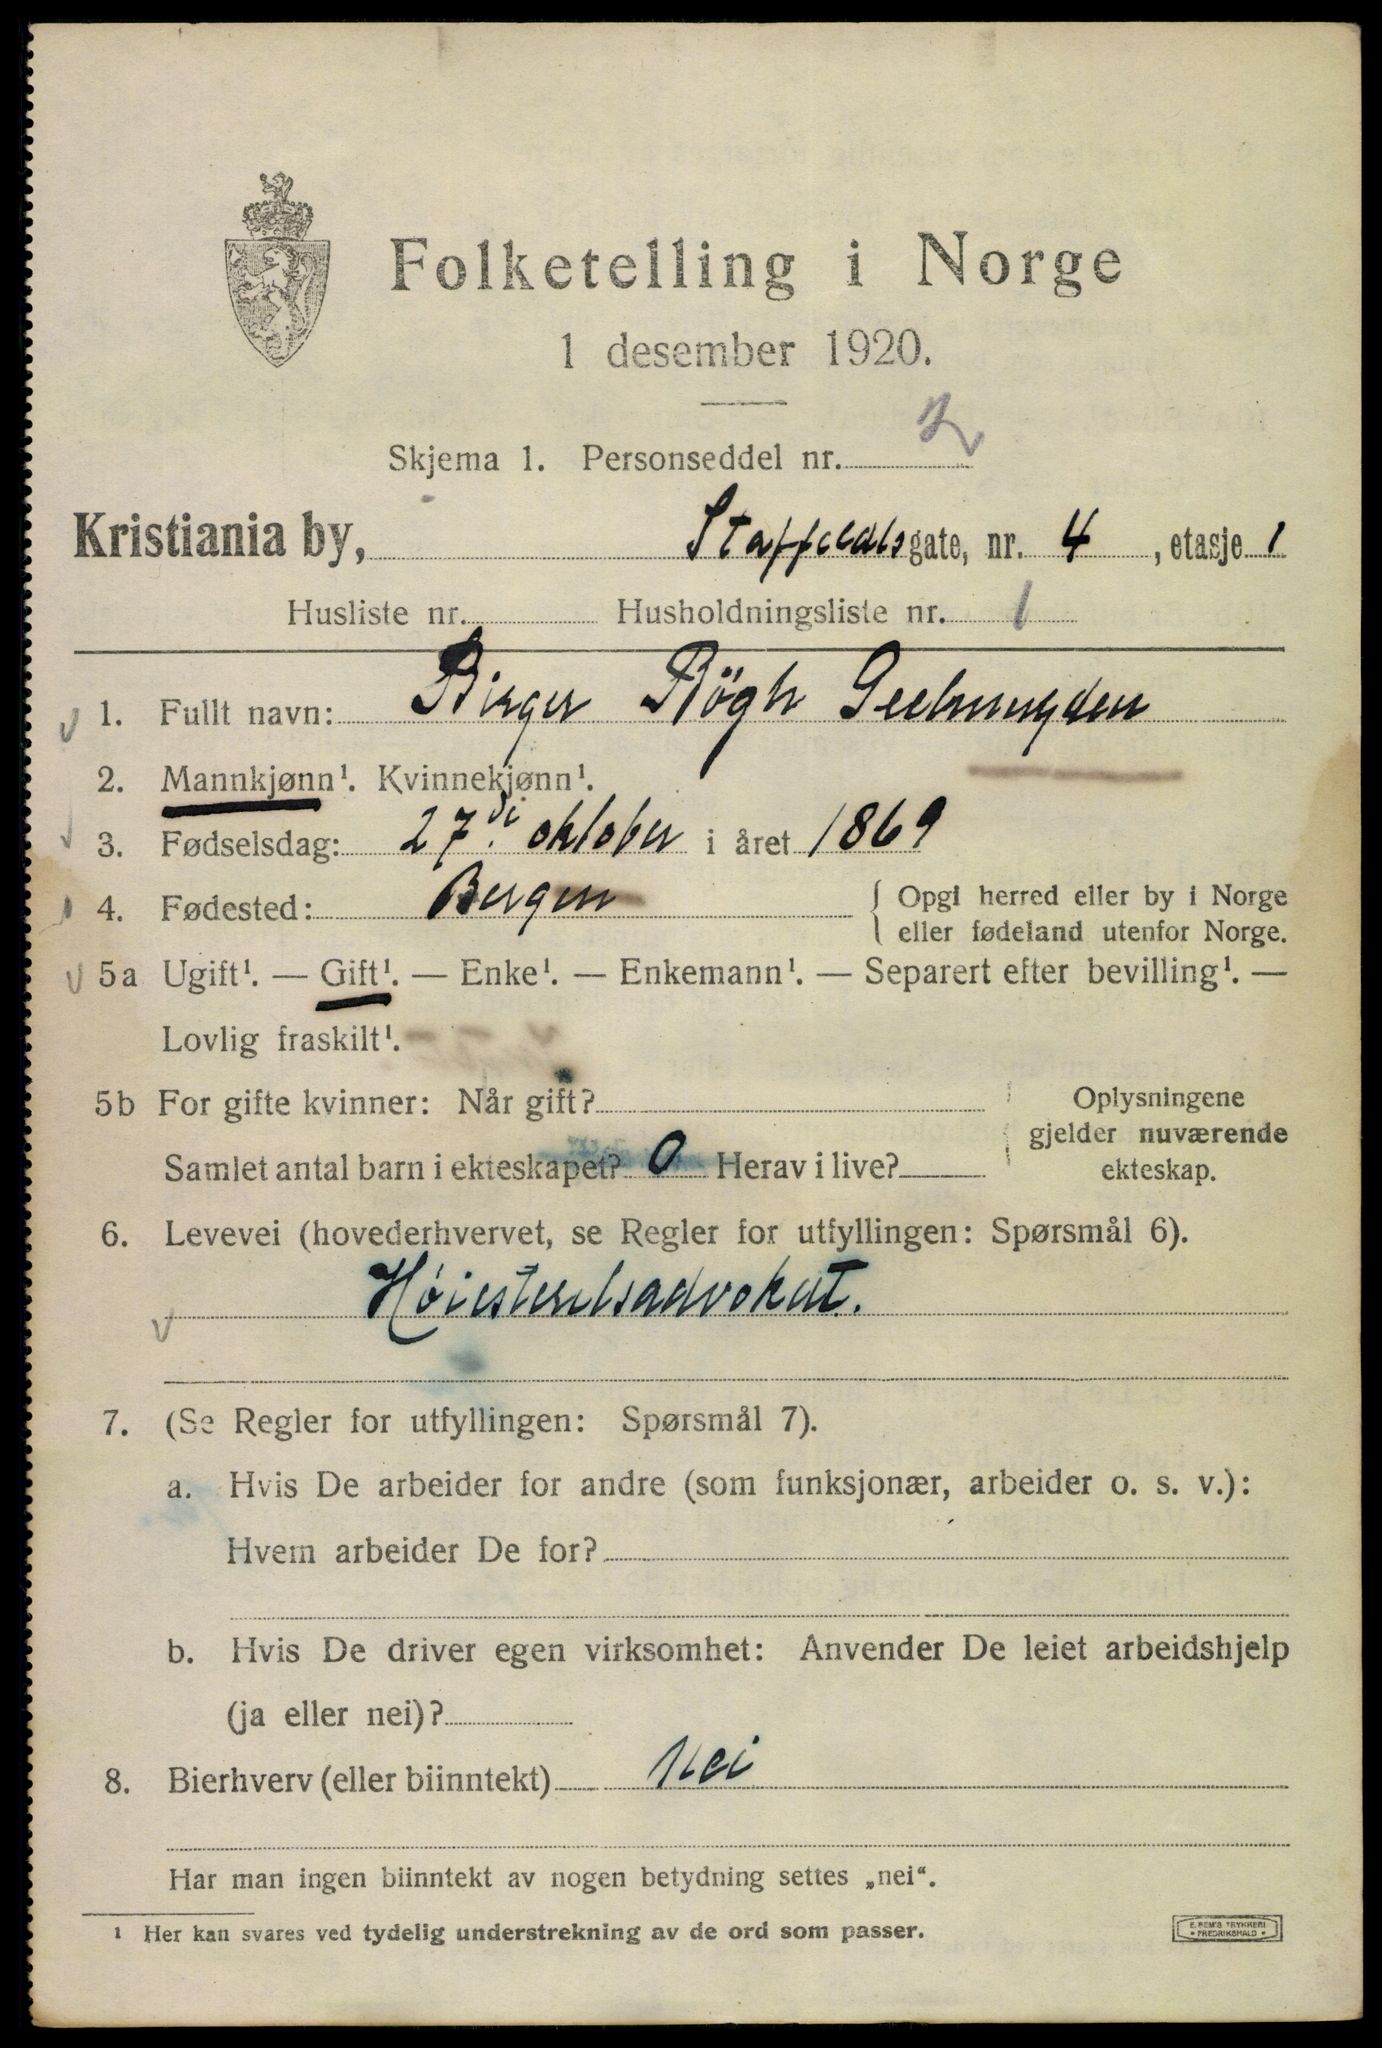 Folketelling i Norge
1 desember 1920.
Skjema 1. Personseddel nr. 2
Kristiania by, Staffeldtsgate, nr. 4, etasje 1
Husliste nr. Husholdningsliste nr. 1
1. Fullt navn: Birger Bögh Geelmuyden
2. Mannkjønn¹. Kvinnekjønn¹.
3. Fødselsdag: 27di oktober i året 1869
4. Fødested: Bergen { Opgi herred eller by i Norge
eller fødeland utenfor Norge.
5a Ugift¹. — Gift¹. — Enke¹. — Enkemann¹. — Separert efter bevilling¹. —
Lovlig fraskilt¹.
5b For gifte kvinner: Når gift? Oplysningene
gjelder nuværende
Samlet antal barn i ekteskapet? 0 Herav i live? ekteskap.
6. Levevei (hovederhvervet, se Regler for utfyllingen: Spørsmål 6).
Höiesteretsadvokat.
7. (Se Regler for utfyllingen: Spørsmål 7).
a. Hvis De arbeider for andre (som funksjonær, arbeider o. s. v.):
Hvem arbeider De for?
b. Hvis De driver egen virksomhet: Anvender De leiet arbeidshjelp
(ja eller nei)?
8. Bierhverv (eller biinntekt) Nei
Har man ingen biinntekt av nogen betydning settes „nei“.
¹ Her kan svares ved tydelig understrekning av de ord som passer.
E. SEM'S TRYKKERI
• FREDRIKSHALD •